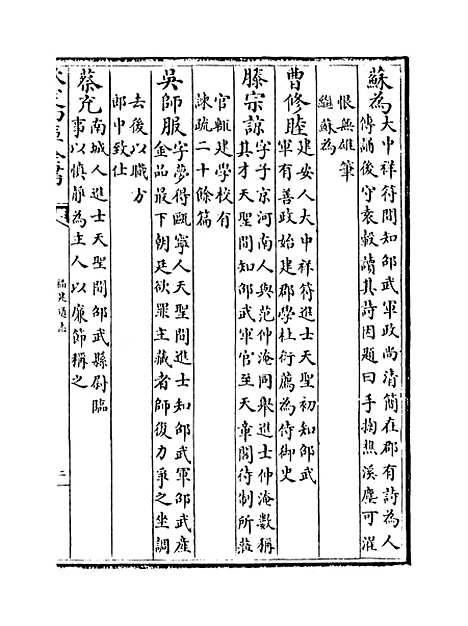 蘇為大中祥符間知邵武軍政尚清簡在郡有詩為人
傳誦後守袁轂讀其詩因題曰手掬樵溪塵可濯
恨無雄筆
繼蘇為
曹修睦建安人大中祥符進士天聖初知邵武
軍有善政始建郡學杜衍薦為侍御史
滕宗諒字子京河南人與范仲淹同舉進士仲淹數稱
其才天聖間知邵武軍官至天章閣待制所蒞
官輒建學校有
諫疏二十餘篇
吳師服字夢得甌寧人天聖間進士知邵武軍邵武產
金品最下朝廷欲罪主藏者師復力爭之坐調
去後以職方
郎中致仕
蔡充南城人進士天聖間邵武縣尉臨
事以慎靜為主人以廉節稱之
福建通志
二